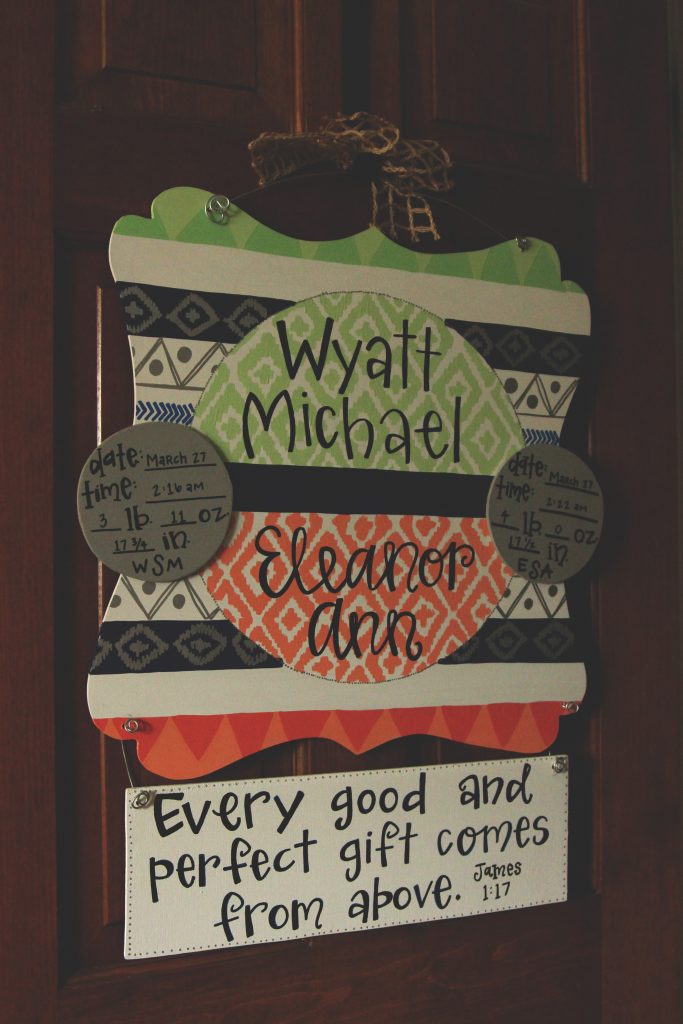 Wyatt
Michael
date: March 27
time: 2:16 am
3 lb. 11 oz
17 3/4 in.
WSM
date: March 27
time: 2:22 am
4 lb. 0 oz
17 1/2 in.
ESA
Eleanor
Ann
Every good and
perfect gift comes
from above. James
1:17